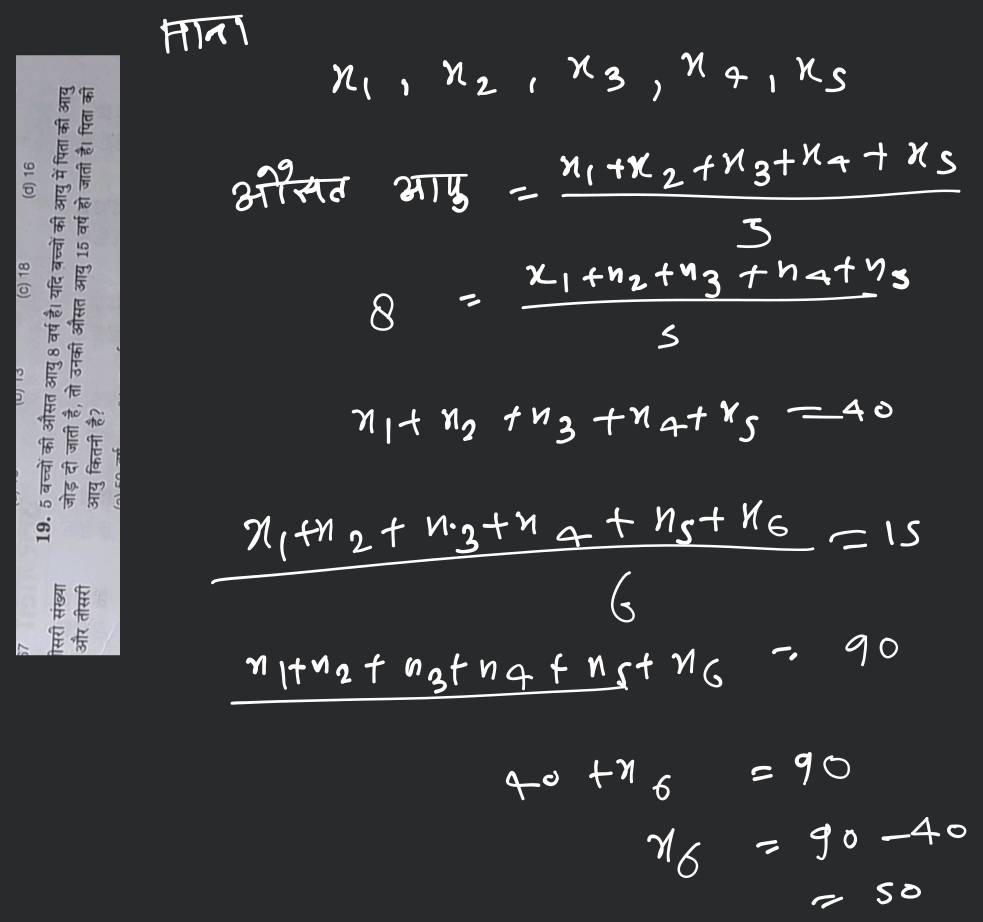 (c) 18 (d) 16
19. 5 बच्चों की औसत आयु 8 वर्ष है। यदि बच्चों की आयु में पिता की आयु
जोड़ दी जाती है, तो उनकी औसत आयु 15 वर्ष हो जाती है। पिता की
आयु कितनी है?
संख्या
और तीसरी
माना
x₁, x₂, x₃, x₄, x₅
औसत आयु = x₁+x₂+x₃+x₄+x₅
5
8 = x₁+x₂+x₃+x₄+x₅
5
x₁+x₂+x₃+x₄+x₅ = 40
x₁+x₂+x₃+x₄+x₅+x₆ = 15
6
x₁+x₂+x₃+x₄+x₅+x₆ = 90
40+x₆ = 90
x₆ = 90-40
= 50